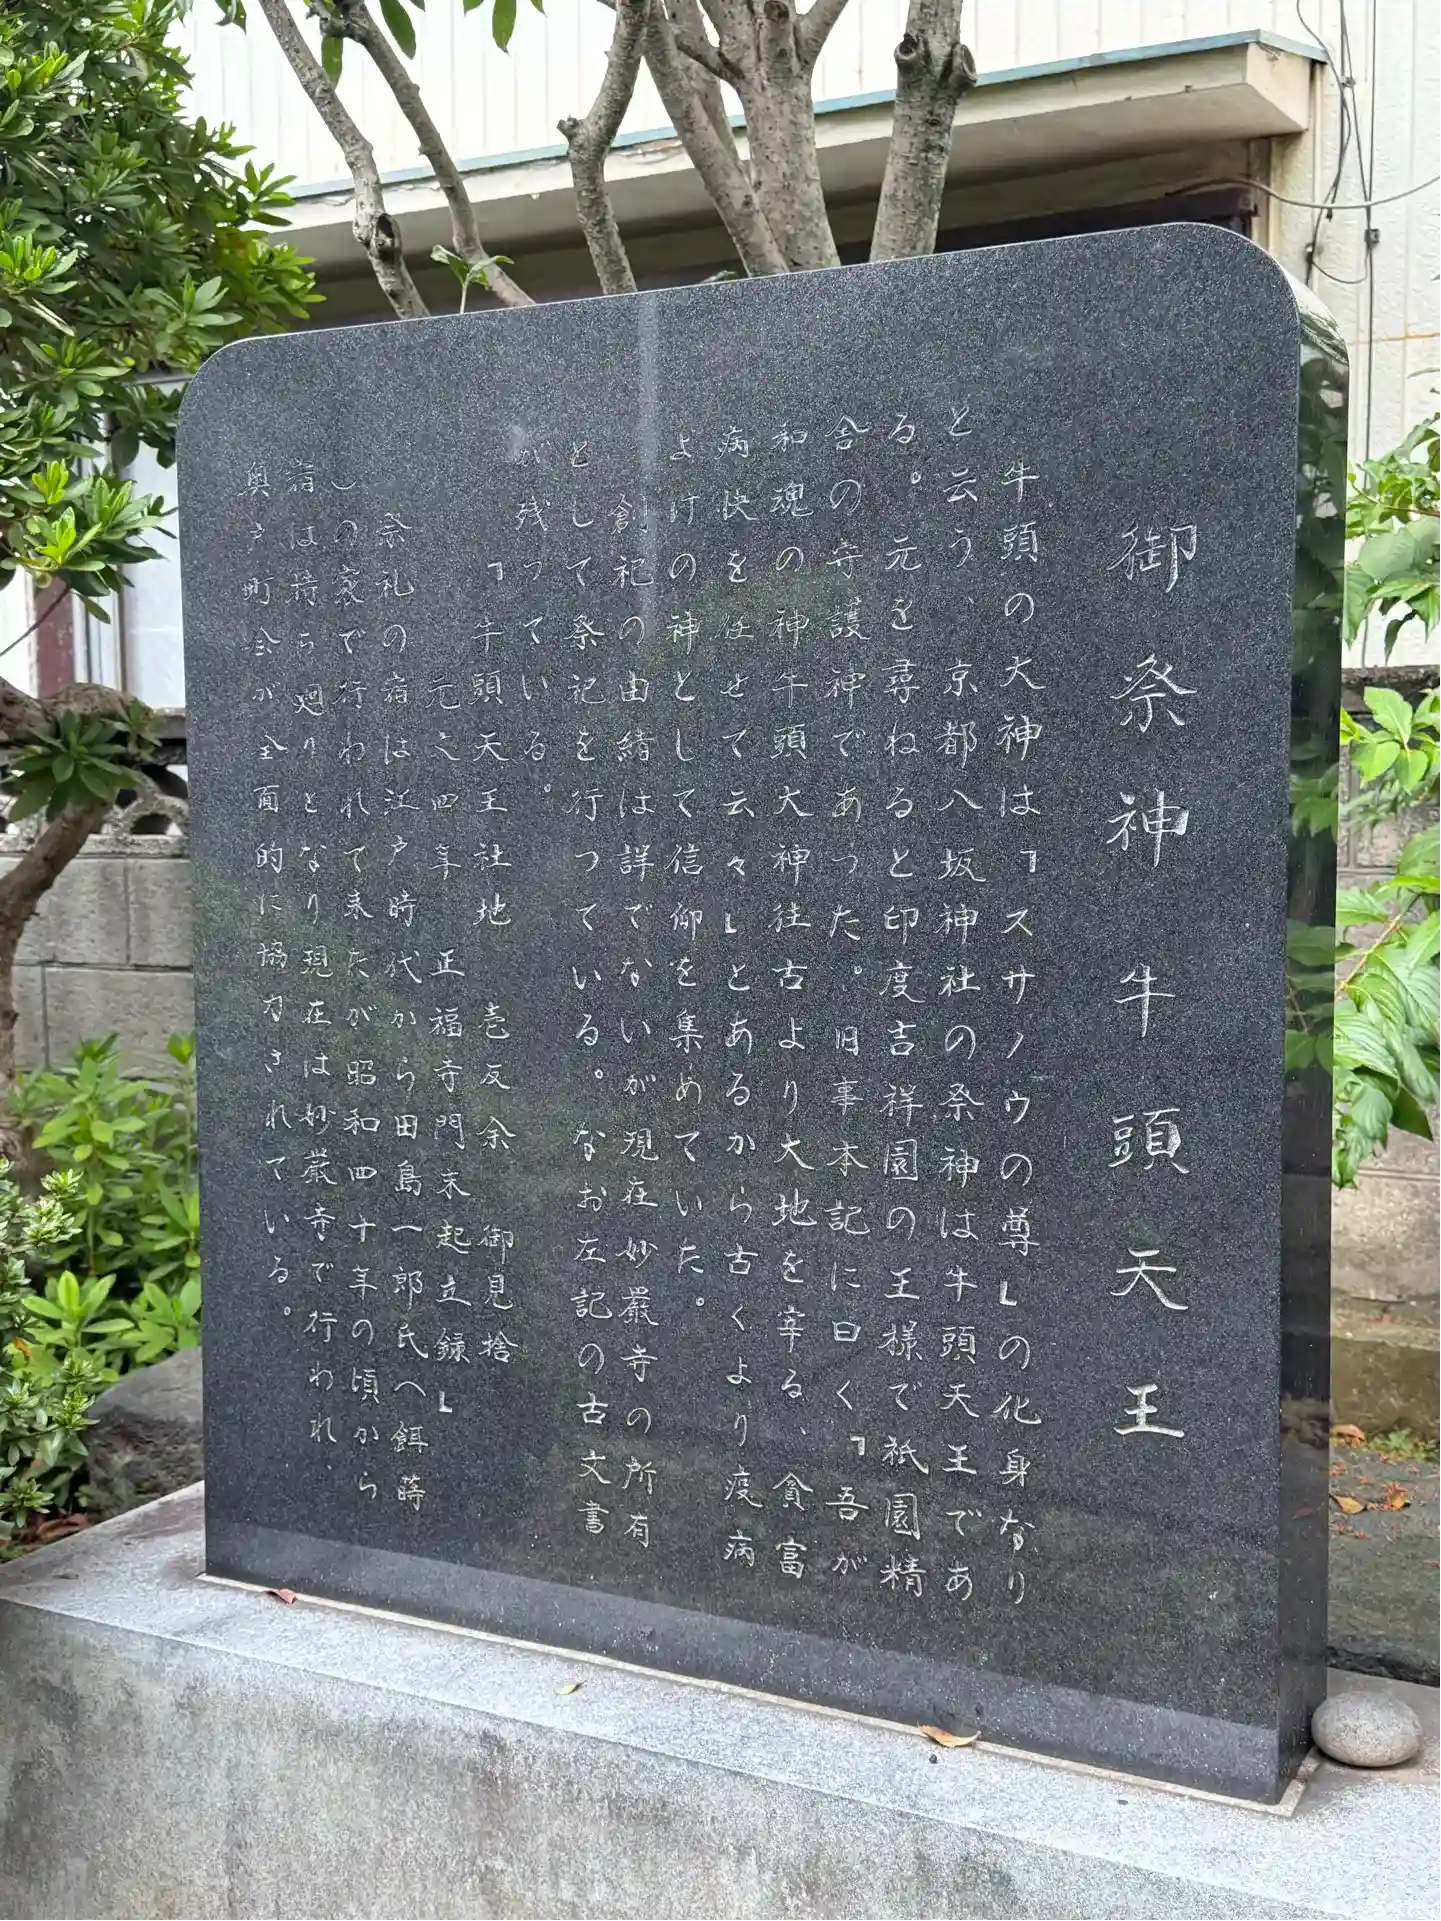 御祭神牛頭天王
牛頭の大神は「スサノウの尊」の化身なり
と云う、京都八坂神社の祭神は牛頭天王であ
る。元を尋ねると印度吉祥園の王様で祇園精
舎の守護神であった。旧事本記に曰く「吾が
和魂の神牛頭大神往古より大地を宰る、貧富
病快を任せて云々」とあるから古くより疫病
よけの神として信仰を集めていた。
創祀の由緒は詳でないが現在妙厳寺の所有
として祭祀を行っている。なお左記の古文書
が残っている。
「牛頭天王社地 壱反余 御見捨
元文四年 正福寺門末起立録」
祭礼の宿は江戸時代から田島一郎氏へ餌蒔
しの家で行われて来たが昭和四十年の頃から
宿は持ち廻りとなり現在は妙厳寺で行われ、
奥戸町会が全面的に協力されている。